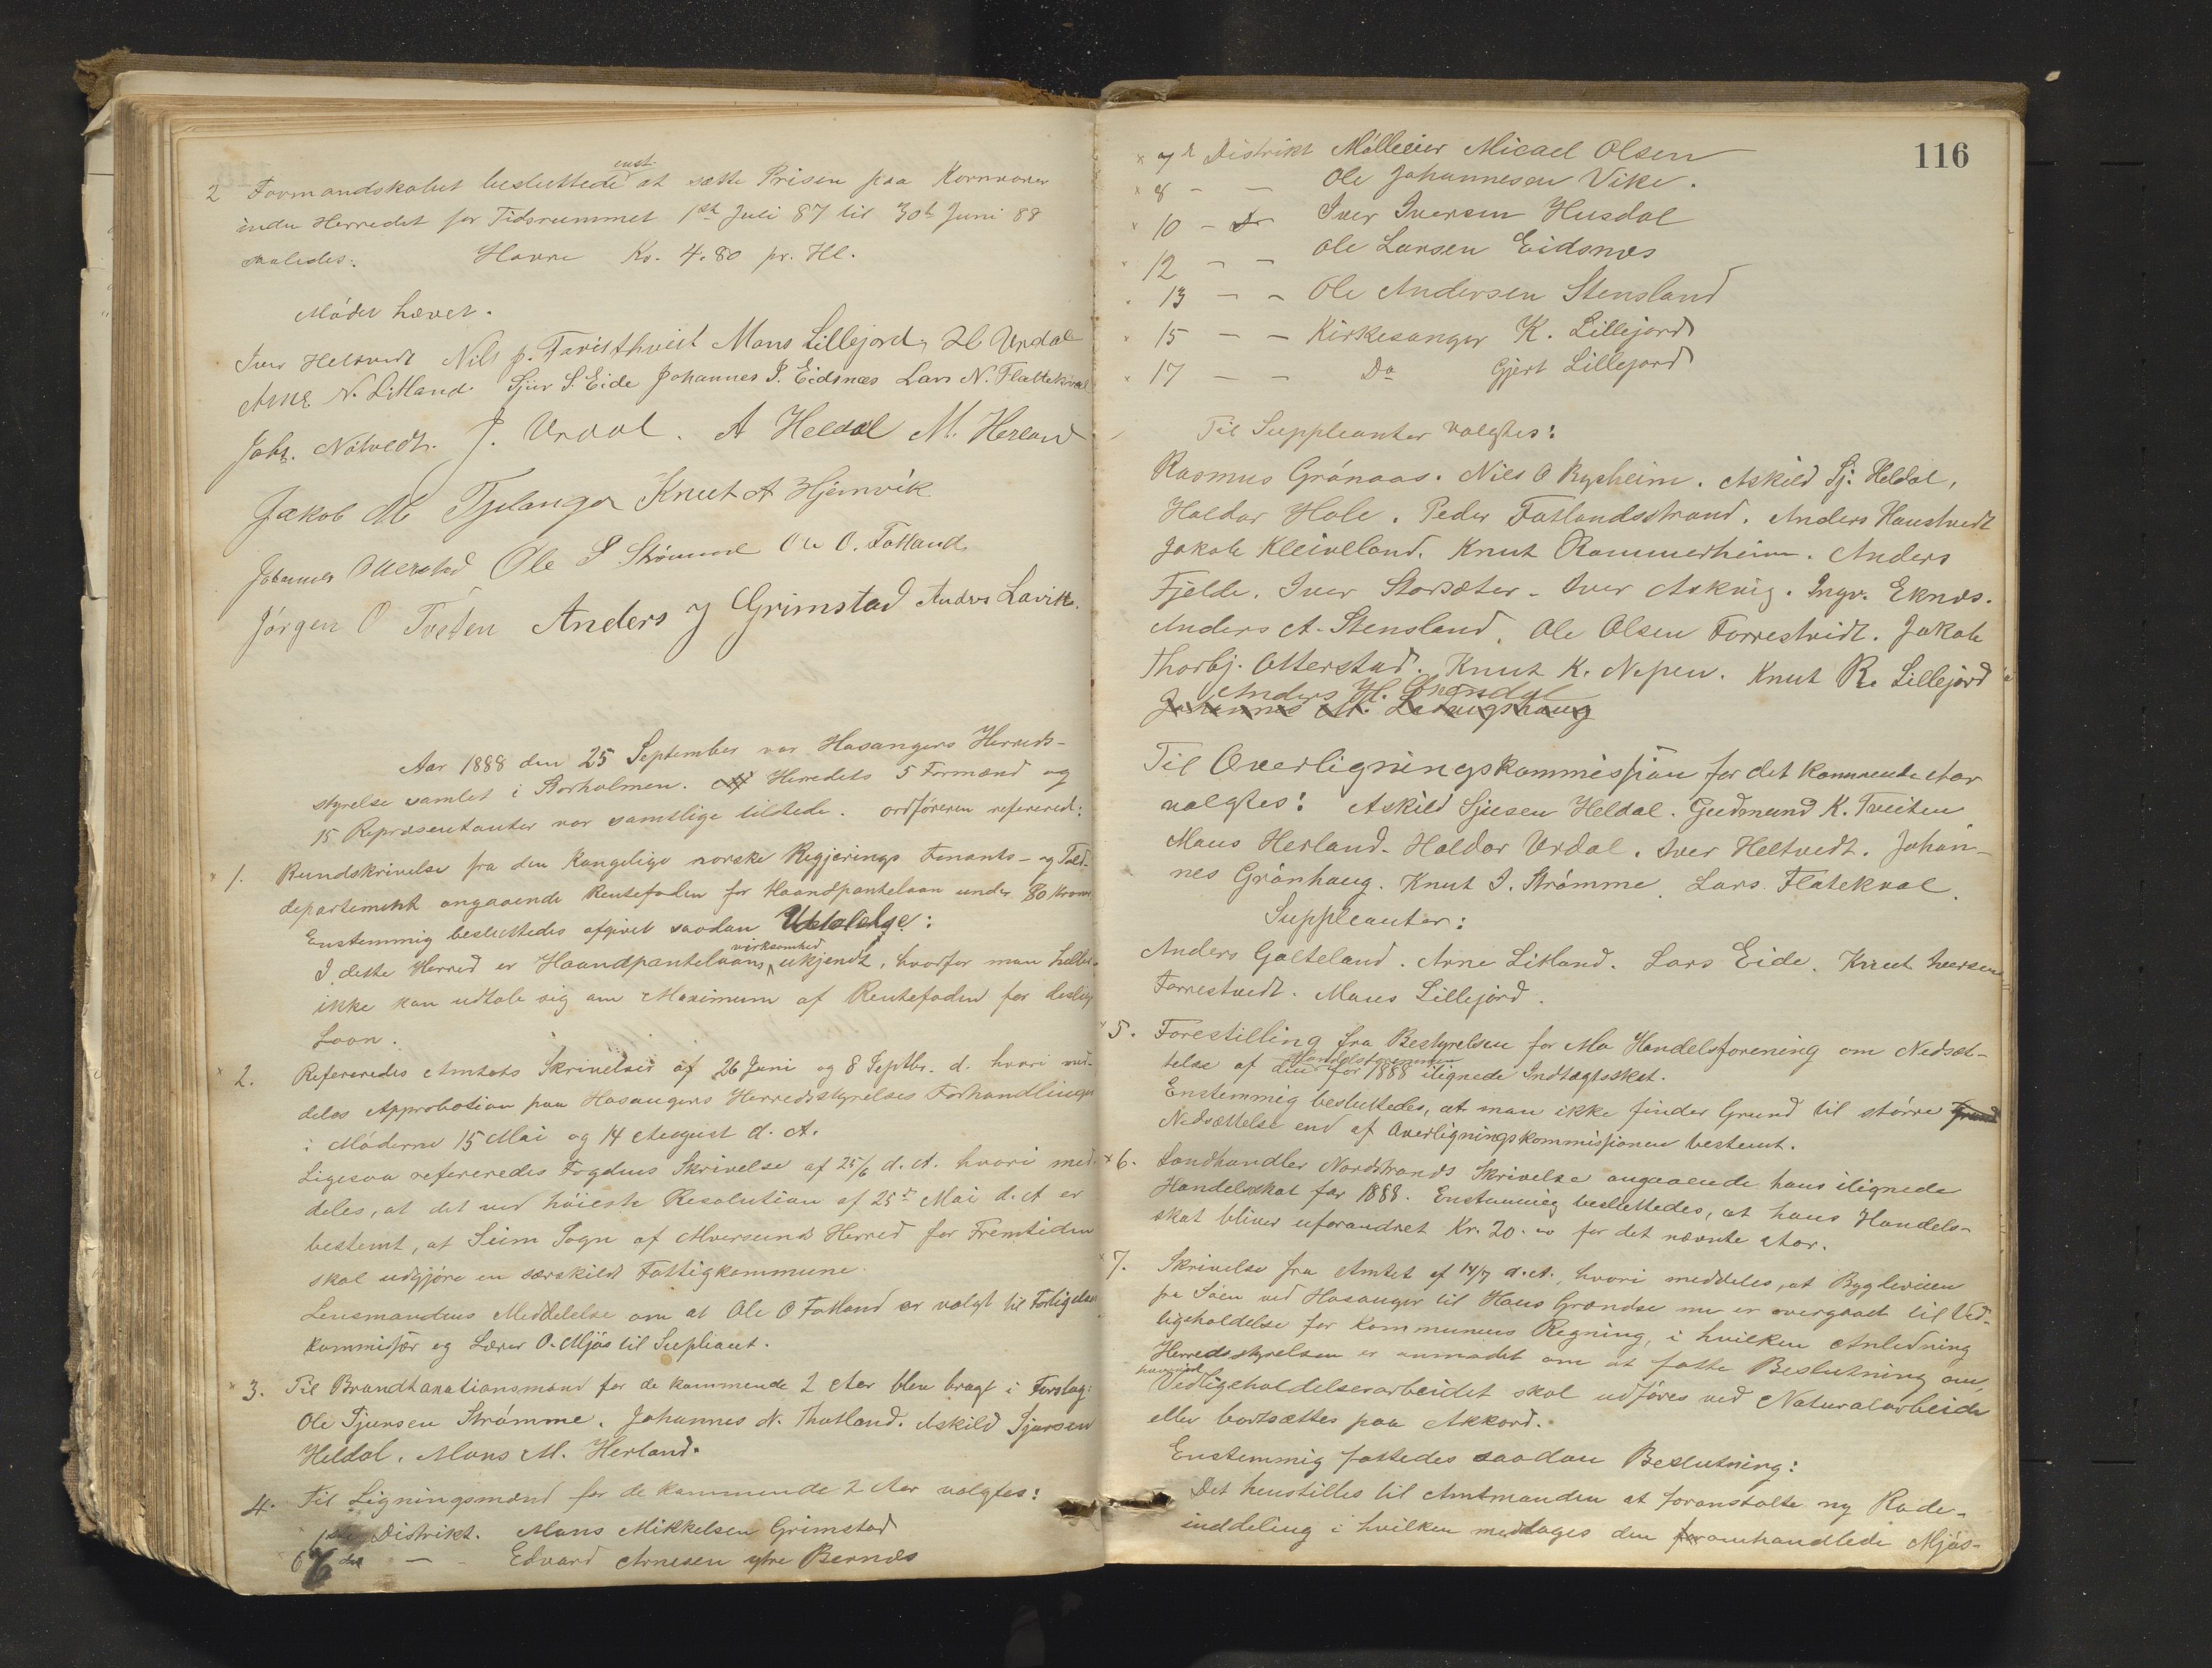 2 Formandskabet besluttede enst. at sætte Prisen paa Kornvarer
inden Herredet for Tidsrummet 1ste Juli 87 til 30te Juni 88
saaledes: Havre Kr. 4.80 pr. Hl.
Mødet hævet.
Iver Heltvedt Nils J. Mons Lillejord, H Urdal
Arne N. Litland. Sjur S. Eide Johannes J. Eidsnæs Lars N. Flatekval
Johs. Nøtvedt. J. Urdal. A Heldal M. Herland
Jakob M Tjelanger Knut A Hjemvik
Johannes Otterstad Ole S Strømme Ole O. Fatland
Jørgen O Tveten Anders J Grimstad Anders Lavik
Aar 1888 den 25 September var Hosangers Herreds-
styrelse samlet i Storholmen. Af Herredets 5 Formænd og
15 Repræsentanter var samtlige tilstede. Ordføreren refereret:
1. Rundskrivelse fra den Kongelige norske Regjerings Finants- og Told-
departement angaaende Rentefoden for Haandpantelaan under 80 Kroner
Enstemmig besluttedes afgivet saadan Udtalelse:
I dette Herred er Haandpantelaans virksomhed ukjendt, hvorfor man heller
ikke kan udtale sig om Maximum af Rentefoden for deslig
Laan.
2. Refereredes Amtets Skrivelser af 26 Juni og 8 Septbr. d. hvori med-
deles Approbation paa Hosangers Herredsstyrelses Forhandlinger
i Møderne 15 Mai og 14 August d. A.
Ligesaa refereredes Fogdens Skrivelse af 25/6 d. A. hvori med-
deles, at det ved høieste Resolution af 25de Mai d. A er
bestemt, at Seim Sogn af Alversunds Herred for Fremtiden
skal udgjøre en særskildt Fattigkommune.
Lensmandens Meddelelse om at Ole O Fatland er valgt til Forligelses
kommisær og Lærer O. Mjøs til Supleant.
3. Til Brandtaxationsmænd for de kommende 2 Aar blev bragt i Forslag:
Ole Sjursen Strømme. Johannes N. Thotland. Askild Sjursen
Heldal. Mons M. Herland.
4. Til Ligningsmænd for de kommende 2 Aar valgtes:
1ste Distrikt. Mons Mikkelsen Grimstad
6 de — - Edvard Arnesen ytre Bernæs
116
7de Distrikt Mølleeier Micael Olsen
8 - - Ole Johannesen Vike.
10 - - Iver Iversen Husdal
12 - - Ole Larsen Eidsnæs
13 - - Ole Andersen Stensland
15 - - Kirkesanger K. Lillejord
17 - - Do Gjert Lillejord
Til Suppleanter valgtes:
Rasmus Grønaas. Nils O Rysheim. Askild Sj. Heldal,
Haldor Hole. Peder Fatlandsstrand. Anders Haustvedt
Jakob Kleiveland. Knut Rommerheim. Anders
Fjelde. Iver Storsæter - Iver Askvig. Ingv. Eknæs.
Anders A. Stensland. Ole Olsen Forrestvedt. Jakob
Thorbj. Otterstad. Knut K. Nepen. Knut R. Lillejord
Anders H.
Johannes
Til Overligningskommission for det kommende Aar
valgtes: Askild Sjursen Heldal. Gudmund K. Tveiten
Mons Herland - Haldor Urdal. Iver Heltvedt. Johan-
nes Grønhaug. Knut I. Strømme. Lars Flatekval.
Suppleanter:
Anders Galteland. Arne Litland. Lars Eide. Knut Iversen
Forrestvedt. Mons Lillejord.
5. Forestilling fra Bestyrelsen for Mo Handelsforening om Nedsæt-
telse af den Handelsforeningen for 1888 ilignede Indtægtsskat.
Enstemmig besluttedes, at man ikke finder Grund til større Grund
Nedsættelse end af Overligningskommissionen bestemt.
6. Landhandler Nordstrands Skrivelse angaaende hans ilignede
Handelsskat for 1888. Enstemmig besluttedes, at hans Handels-
skat bliver uforandret Kr. 20.00 for det nævnte Aar.
7. Skrivelse fra Amtet af 14/7 d. A., hvori meddeles, at Bygdeveien
fra Søen ved Hosanger til Haus Grændse nu er overgaaet til Ved-
ligeholdelse for Kommunens Regning, i hvilken Anledning
Herredsstyrelsen er anmodet om at fatte Beslutning om,
hvorvidt Vedligeholdelsesarbeidet skal udføres ved Naturalarbeide
eller bortsættes paa Akkord.
Enstemmig fattedes saadan Beslutning:
Det henstilles til Amtmanden at foranstalte ny Rode-
inddeling i hvilken medtages den omhandlede Mjøs-